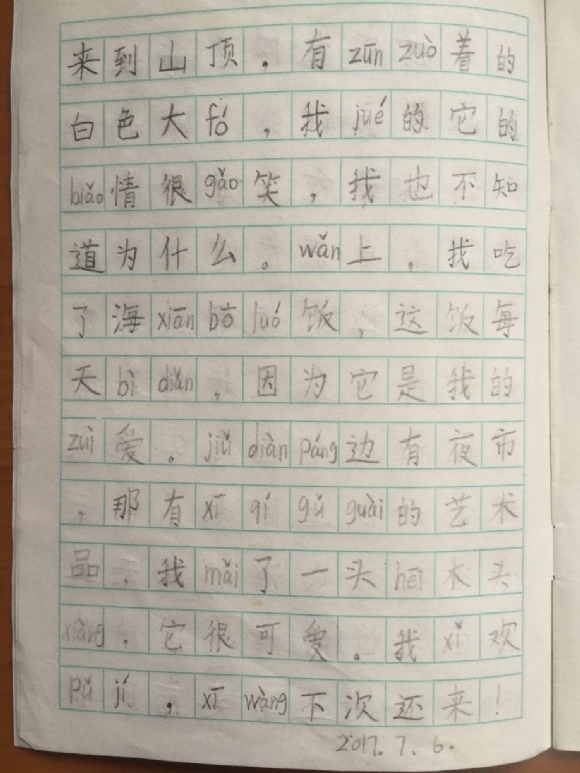 来到山顶，有zūn zuò着的
白色大fó，我jué的它的
biǎo情很gǎo笑，我也不知
道为什么。wǎn上，我吃
了海xiān bō luó饭，这饭每
天bì diǎn，因为它是我的
zuì爱。jiǔ diàn páng边有夜市
，那有xī qí gǔ guài的艺术
品，我mǎi了一头hēi木头
xiàng，它很可爱。我xǐ欢
pǔ jí，xī wàng下次还来！
2017.7.6.